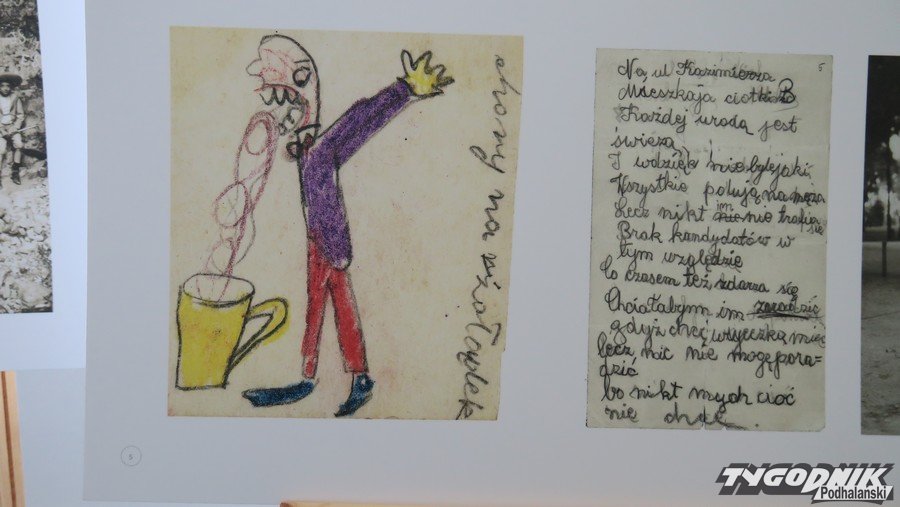 chory na rzołądek
5
Na ul Kazimierza
Mieszkaja ciotki 3
Każdej uroda jest
świeża
I wdzięk niebylejaki
Wszystkie polują na męża
Lecz nikt im nie trafia się
Brak kandydatów w
tym względzie
Co czasem też zdarza się
Chciałabym im zaradzić
gdyż chcę wujeczka mieć
lecz nic nie mogę pora-
dzić
bo nikt mych cioć
nie chce.
5
TYGODNIK
Podhalański